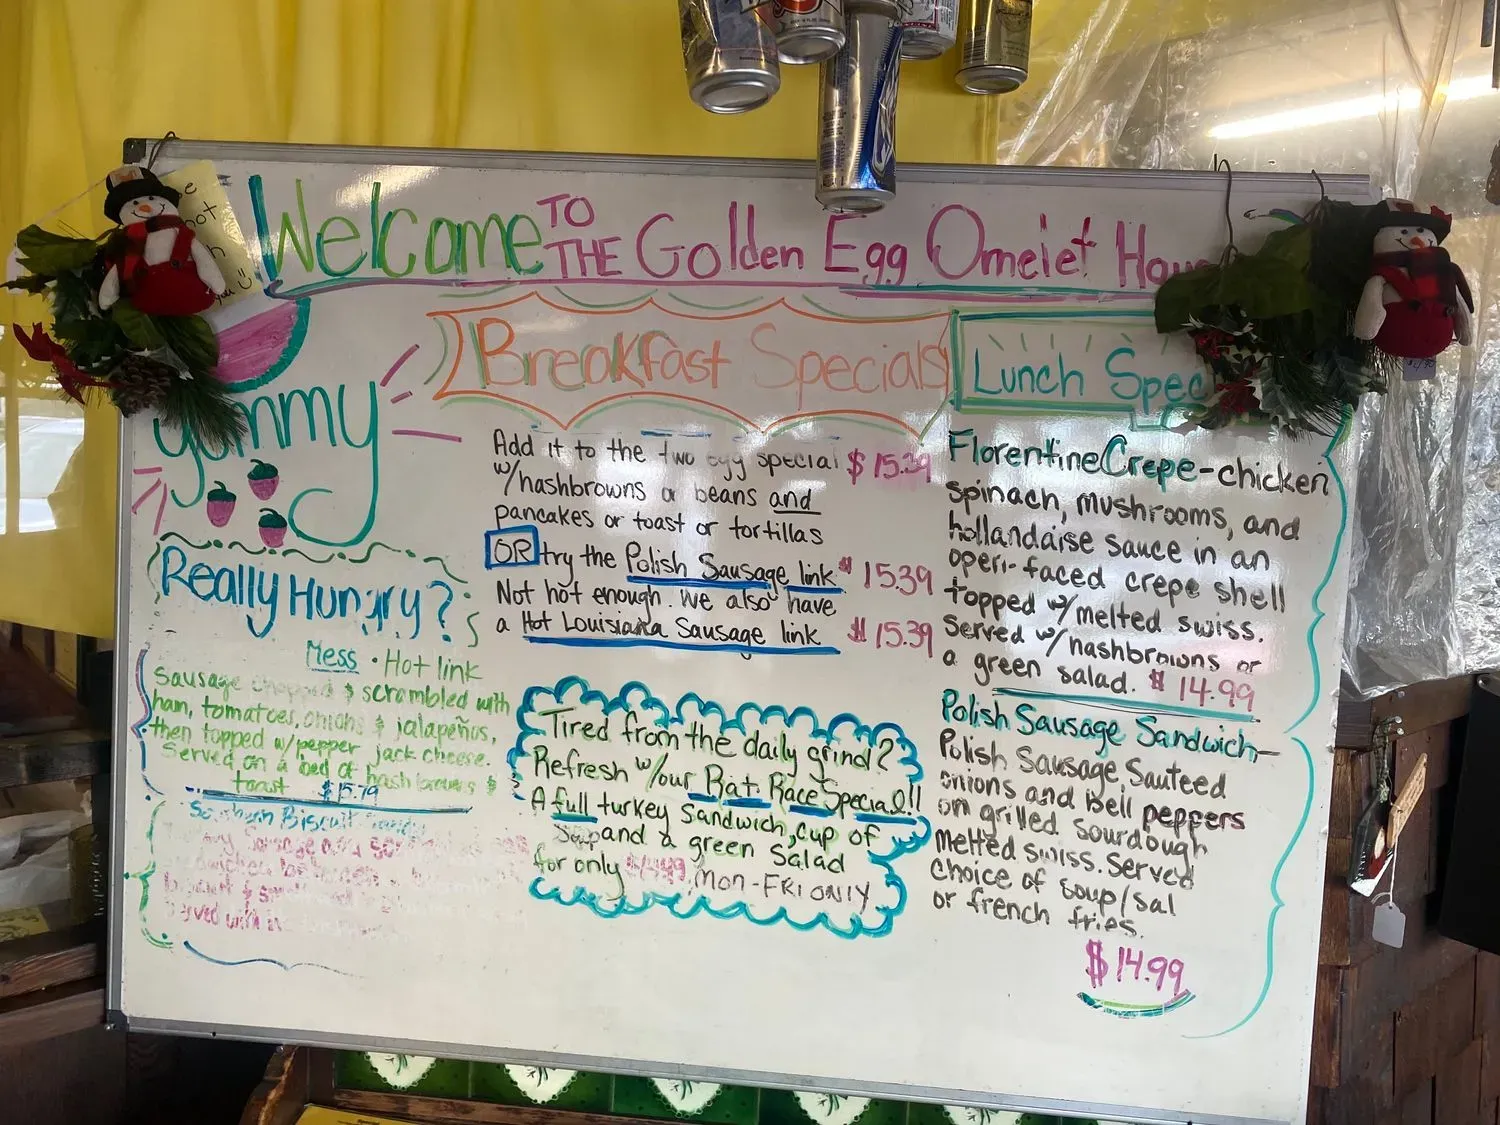 Welcome TO THE Golden Egg Omelet Hou
Yummy
Breakfast Specials
Add it to the two egg special $15.39
w/hashbrowns or beans and
pancakes or toast or tortillas
OR try the Polish Sausage link $15.39
Not hot enough. We also have
a Hot Louisiana Sausage link $15.39
Lunch Spec
Florentine Crepe - chicken
spinach, mushrooms, and
hollandaise sauce in an
open-faced crepe shell
topped w/melted swiss.
Served w/hashbrowns or
a green salad. $14.99
Polish Sausage Sandwich-
Polish Sausage, Sauteed
onions and bell peppers
on grilled sourdough
melted swiss. Served
choice of soup/sal
or french fries.
$14.99
Really Hungry?
Mess • Hot link
Sausage chopped & scrambled with
ham, tomatoes, onions & jalapeños,
then topped w/pepper jack cheese.
Served on a bed of hash browns &
toast $15.79
Southern Biscuit
Sausage
biscuit &
served with
Tired from the daily grind?
Refresh w/our Rat Race Special!!
A full turkey Sandwich, cup of
Soup and a green Salad
for only MON-FRI ONLY